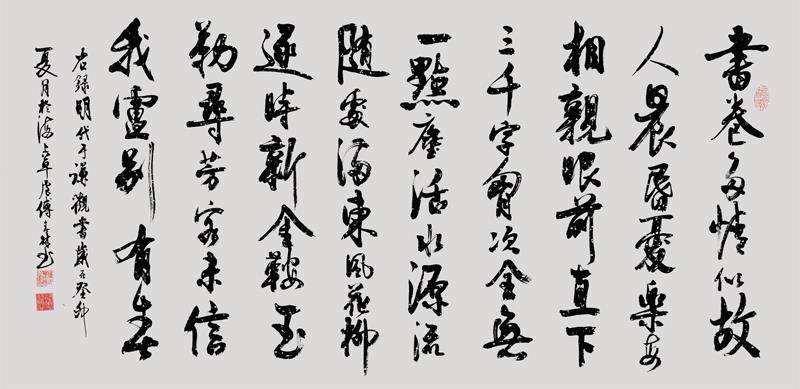 書卷多情似故
人晨昏憂樂每
相親眼前直下
三千字胸次全無
一點塵活水源流
隨處滿東風花柳
逐時新金鞍玉
勒尋芳客未信
我廬別有春
右錄明代于謙觀書歲在癸卯
夏月於海上草廬傅書